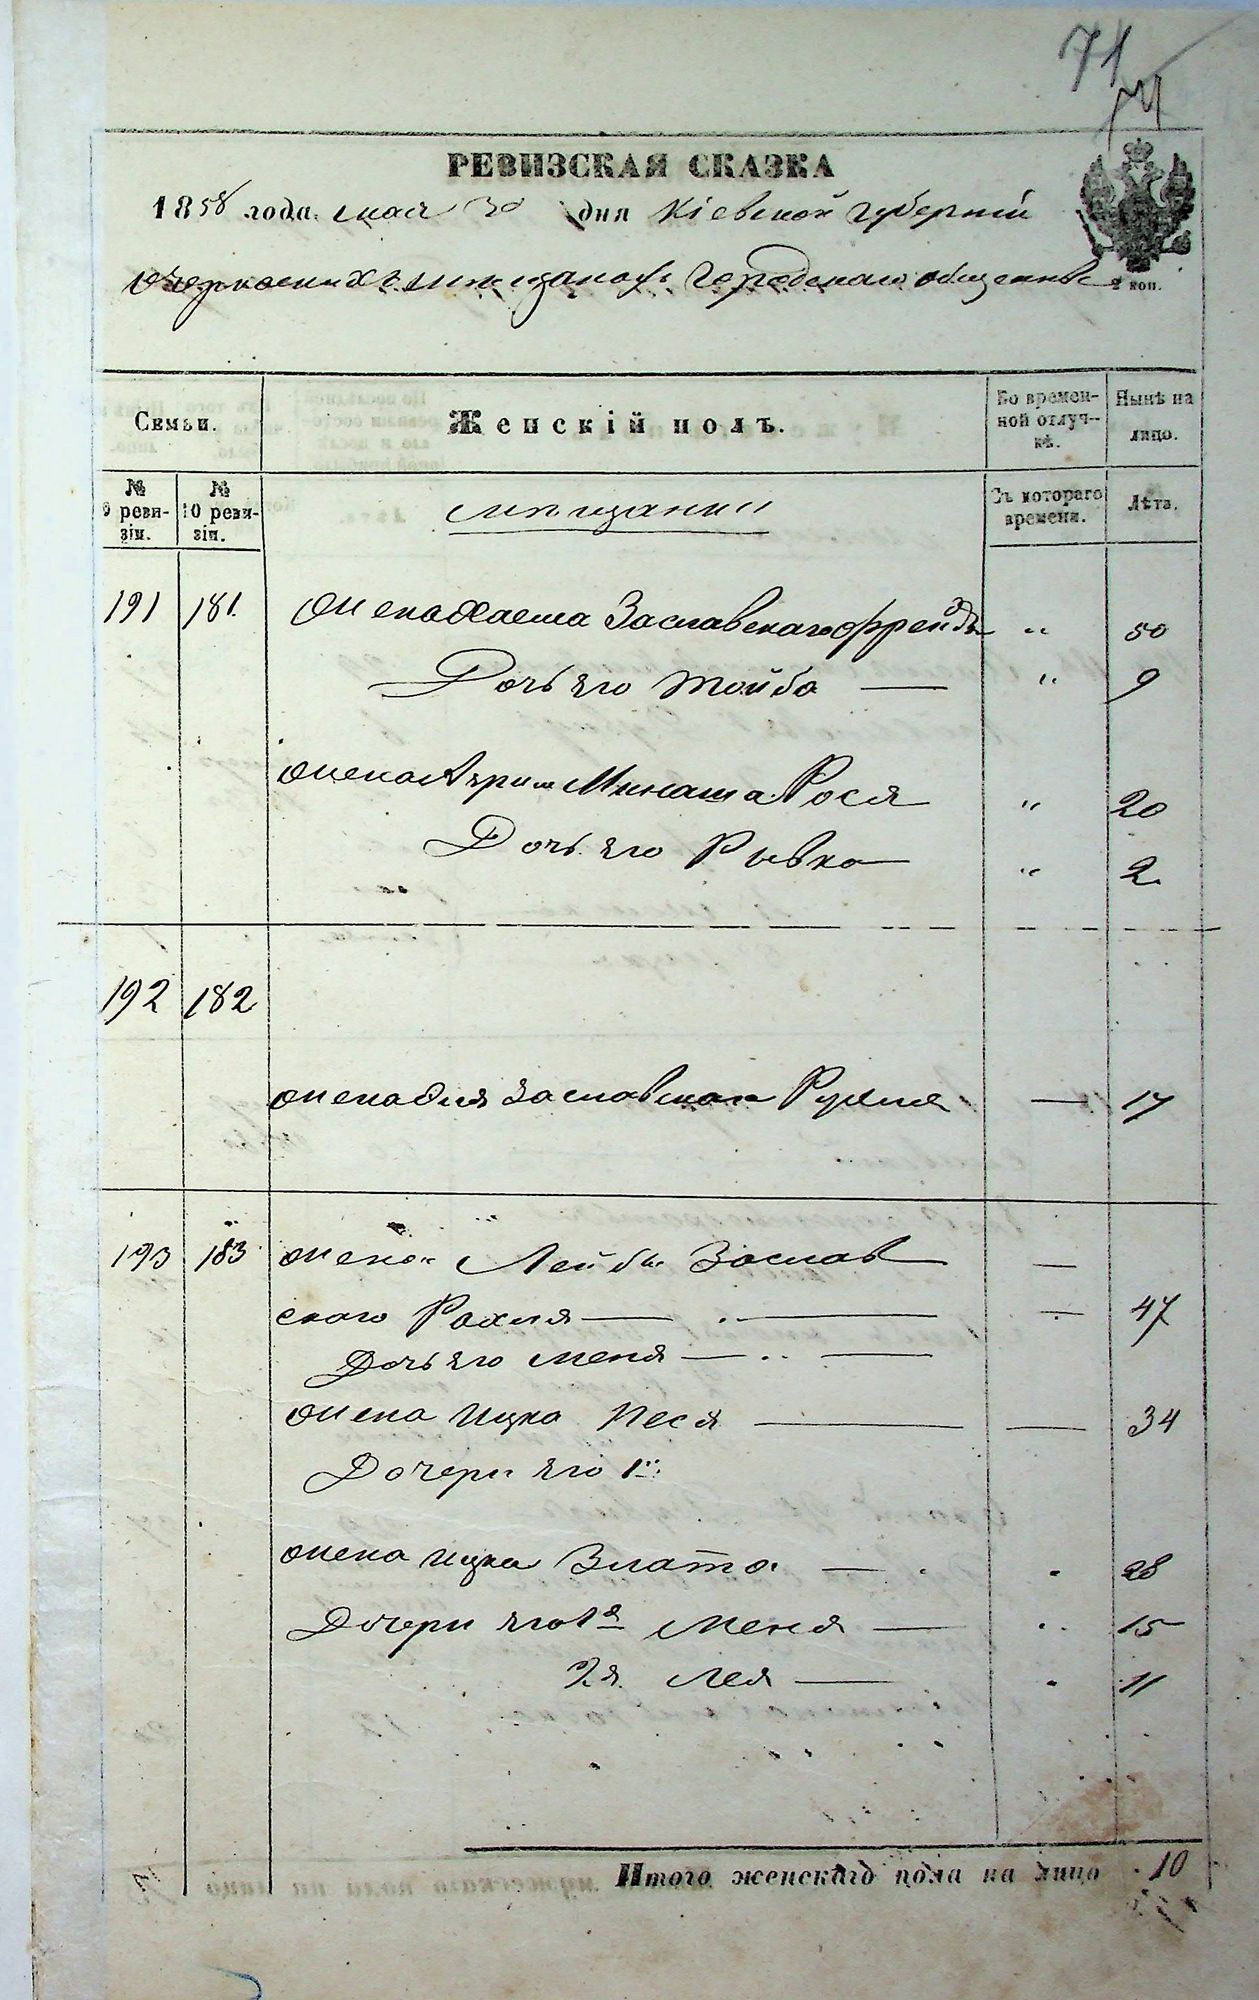 71
РЕВИЗСКАЯ СКАЗКА
1858 года мая 30 дня Кіевской губерніи
мещановъ городскаго общества
2 коп.
Семьи. Женскій полъ. Во времен-ной отлуч-кѣ. Нынѣ на лицо.
№ 9 реви-зіи. № 10 реви-зіи. мещанки Съ котораго времени. Лѣта.
191 181 жена Хаема Заславскаго Фрейда " 50
Дочь его Тойба — " 9
жена Минаша Рося " 20
Дочь его Рывка " 2
192 182
жена Заславскаго — 17
193 183 жена Лейбы Заслав —
скаго Рахля — — 47
Дочь его Меня —
жена Ицка Песя — — 34
Дочери его 1я
жена Ицка Злата — 28
Дочери его 1я Меня — 15
2я Лея — 11
Итого женскаго пола на лицо 10